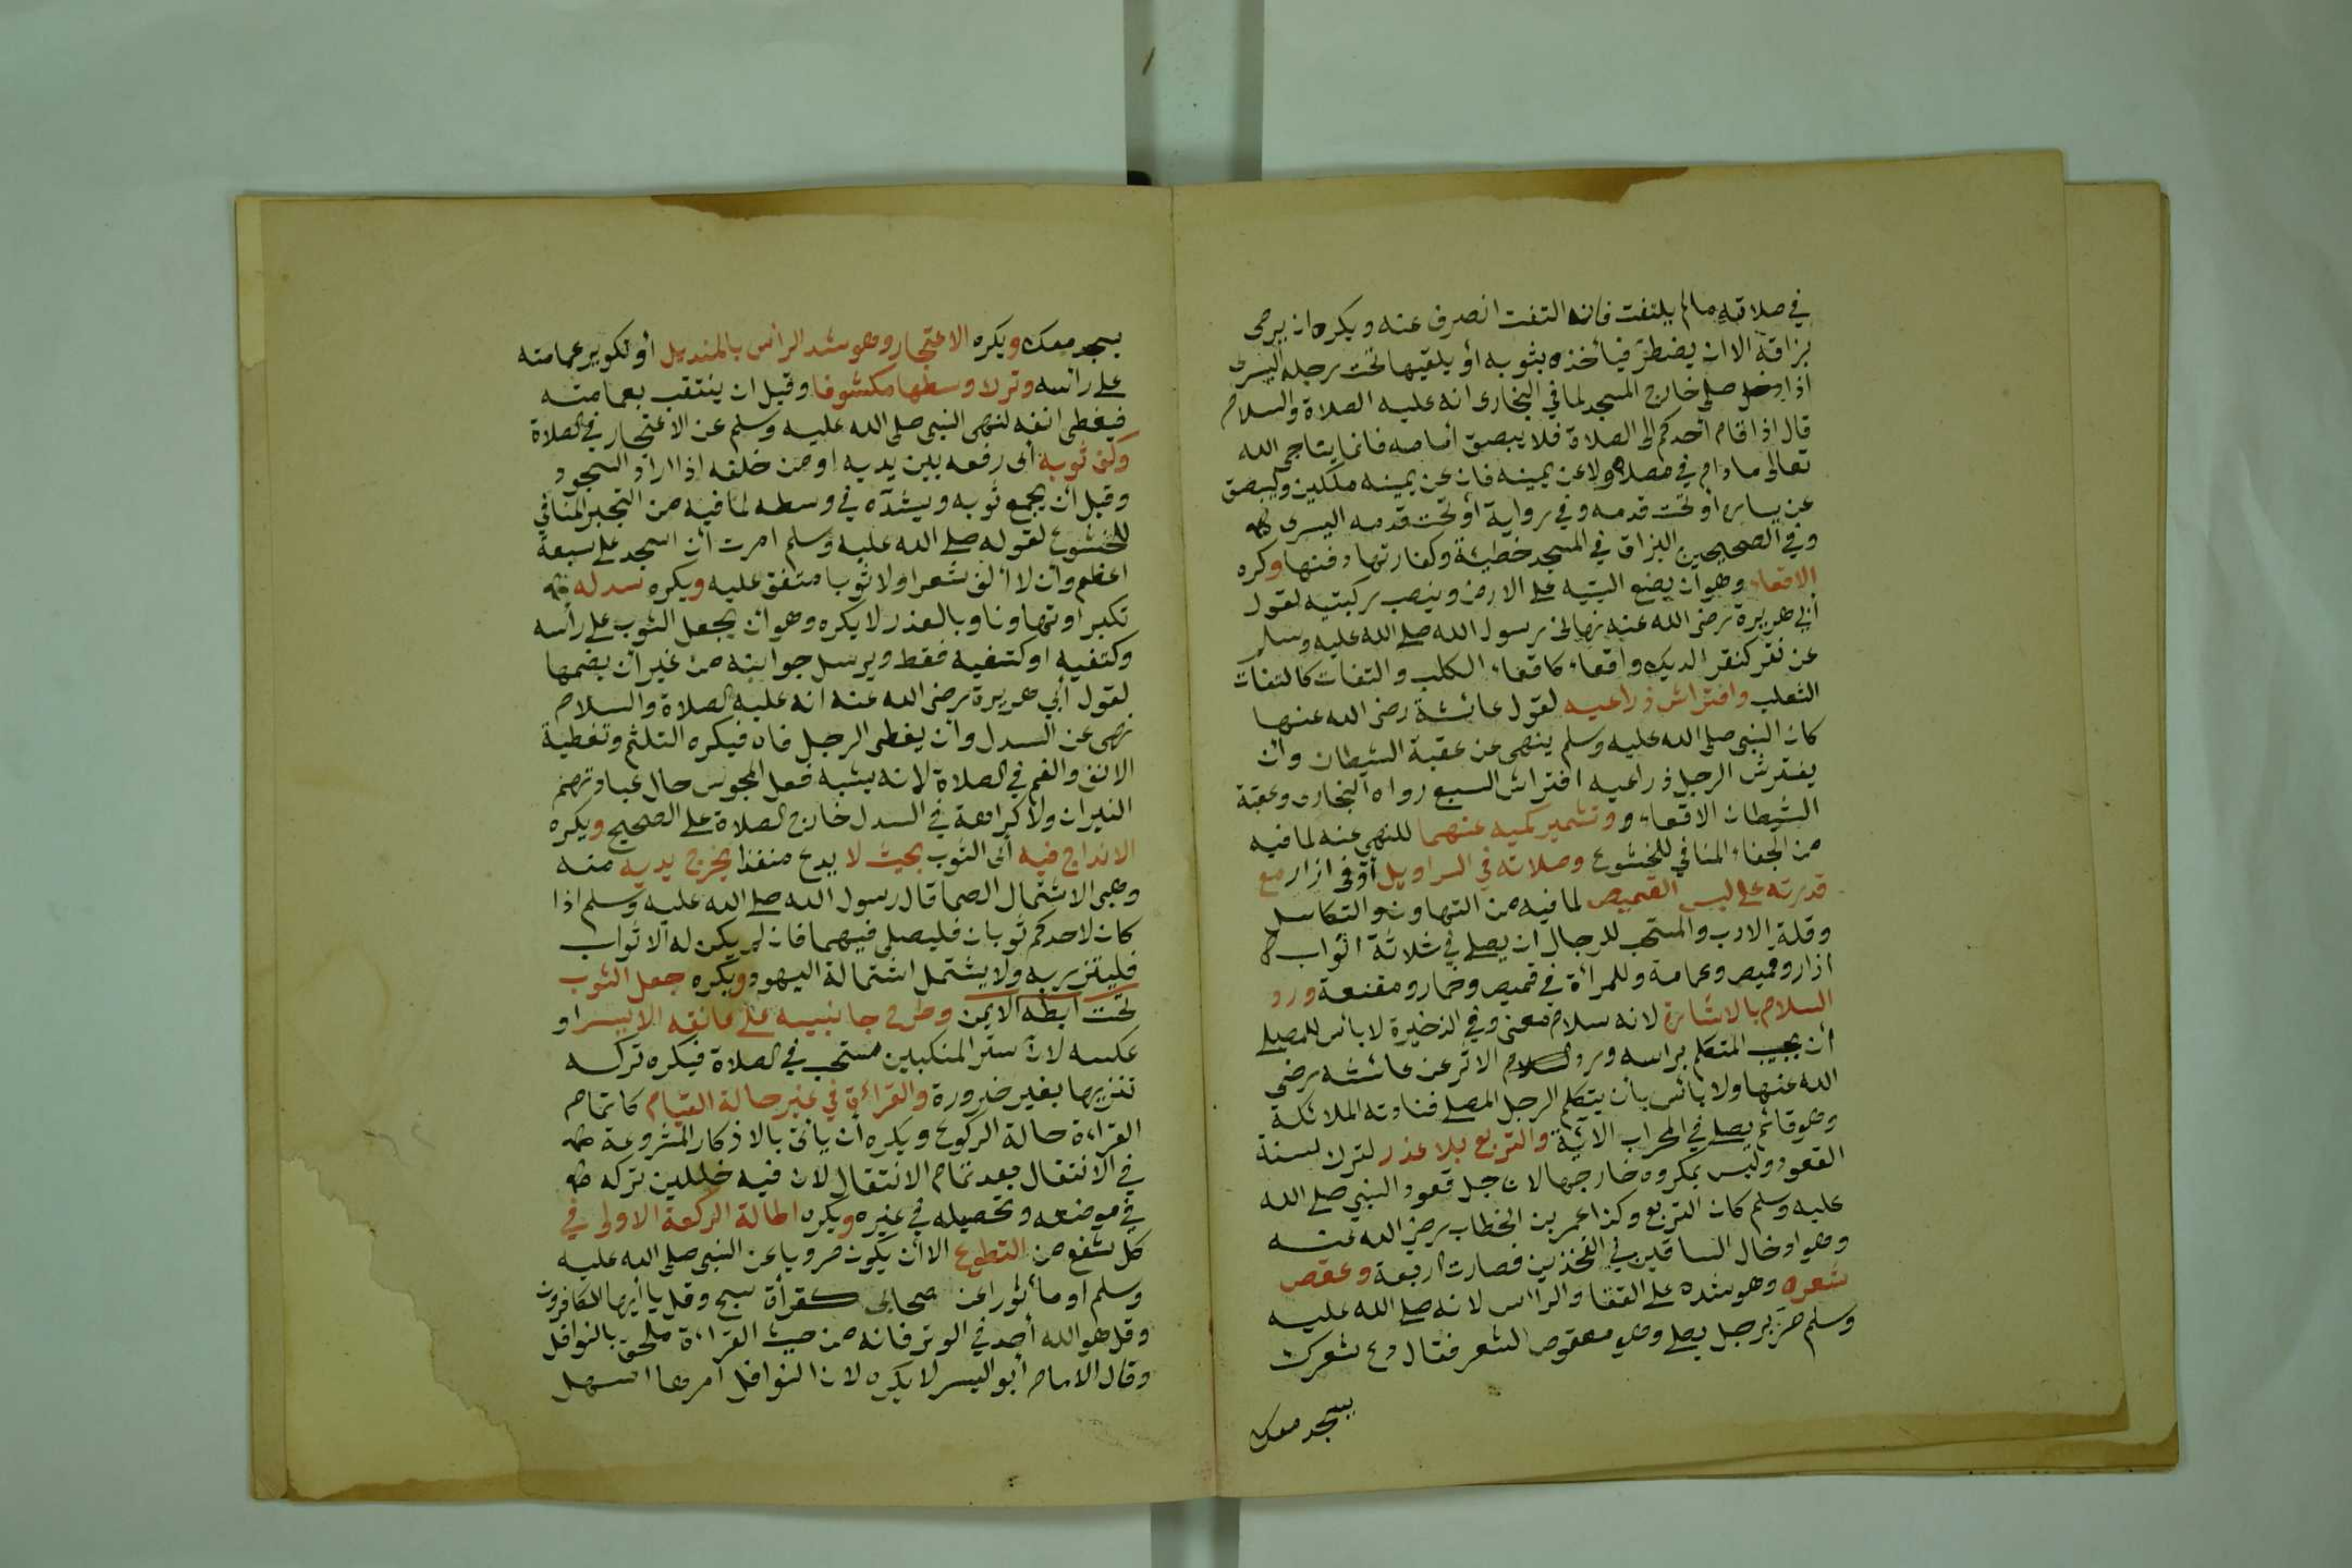 في صلاته مالم يلتفت فانه التفت انصرف عنه ويكره ان يرمى
بزاقه الا ان يضطر فيأخذه بثوبه أو يلقيها تحت رجله اليسرى
اذا صلى خارج المسجد لما في البخارى انه عليه الصلاة والسلام
قال اذا قام أحدكم الى الصلاة فلا يبصق أمامه فانما يناجى الله
تعالى مادام في مصلاه ولا عن يمينه فان عن يمينه ملكين وليبصق
عن يساره أو تحت قدمه وفي رواية أو تحت قدمه اليسرى
وفي الصحيحين البزاق في المسجد خطيئة وكفارتها دفنها وكره
الاقعاء وهو ان يضع اليتيه على الارض وينصب ركبتيه لقول
أبي هريرة رضى الله عنه نهانى رسول الله صلى الله عليه وسلم
عن نقر كنقر الديك واقعاء كاقعاء الكلب والتفات كالتفات
الثعلب وافتراش ذراعيه لقول عائشة رضى الله عنها
كان النبى صلى الله عليه وسلم ينهى عن عقبة الشيطان وان
يفترش الرجل ذراعيه افتراش السبع رواه البخارى وعقبة
الشيطان الاقعاء و وتشمير كميه عنهما للنهى عنه لما فيه
من الجفاء المنافي للخشوع وصلاته في السراويل أو في ازار مع
قدرته على لبس القميص لما فيه من التهاون والتكاسل
وقلة الادب والمستحب للرجال ان يصلى في ثلاثة اثواب
ازار وقميص وعمامة وللمرأة في قميص وخمار ومقنعة ورد
السلام بالاشارة لانه سلام معنى وفي الذخيرة لا بأس للمصلى
أن يجيب المتكلم براسه ورد الاثر عن عائشة رضى
الله عنها ولا بأس بأن يتكلم الرجل المصلى فنادته الملائكة
وهو قائم يصلى في المحراب الآية والتربع بلا عذر لترك سنة
القعود وليس بمكروه خارجها لان جل قعود النبى صلى الله
عليه وسلم كان التربع وكذا عمر بن الخطاب رضى الله عنه
وهو ادخال الساقين في الفخذين فصارت اربعة وعقص
شعره وهو شده على القفا والرأس لانه صلى الله عليه
وسلم مر برجل يصلى وهو معقوص الشعر فقال دع شعرك
يسجد معك
يسجد معك ويكره الاعتجار وهو شد الرأس بالمنديل أو تكوير عمامته
على رأسه وترك وسطها مكشوفا وقيل ان ينتقب بعمامته
فيغطى انفه لنهى النبى صلى الله عليه وسلم عن الاعتجار في الصلاة
وكف ثوبه أى رفعه بين يديه او من خلفه اذا اراد السجود
وقيل أن يجمع ثوبه ويشده في وسطه لما فيه من التجبر المنافي
للخشوع لقوله صلى الله عليه وسلم امرت أن اسجد على سبعة
اعظم وان لا أكف شعرا ولا ثوبا متفق عليه ويكره سدله
تكبرا وتهاونا وبالعذر لا يكره وهو أن يجعل الثوب على رأسه
وكتفيه او كتفيه فقط ويرسل جوانبه من غير ان يضمها
لقول أبي هريرة رضى الله عنه انه عليه الصلاة والسلام
نهى عن السدل وأن يغطى الرجل فاه فيكره التلثم وتغطية
الانف والفم في الصلاة لانه يشبه فعل المجوس حال عبادتهم
النيران ولا كراهة في السدل خارج الصلاة على الصحيح ويكره
الاندراج فيه أى الثوب بحيث لا يدع منفذا يخرج يديه منه
وهى الاشتمال الصما قال رسول الله صلى الله عليه وسلم اذا
كان لاحدكم ثوبان فليصلى فيهما فان لم يكن له الا ثواب
فليتزر به ولا يشتمل اشتمالة اليهود ويكره جعل الثوب
تحت ابطه الايمن وطرح جانبيه على عاتقه الايسر او
عكسه لان ستر المنكبين مستحب في الصلاة فيكره تركه
تنزيها بغير ضرورة والقراءة في غير حالة القيام كاتمام
القراءة حالة الركوع ويكره أن يأتى بالاذكار المشروعة
في الانتقال بعد تمام الانتقال لان فيه خللين تركه
في موضعه وتحصيله في غيره ويكره اطالة الركعة الاولى في
كل شفع من التطوع الا أن يكون مرويا عن النبى صلى الله عليه
وسلم او مأثورا عن صحابى كقرأة سبح وقل يا أيها الكافرون
وقل هو الله أحد في الوتر فانه من حيث القراءة ملحق بالنوافل
وقال الامام أبو اليسر لا يكره لان النوافل امرها اسهل